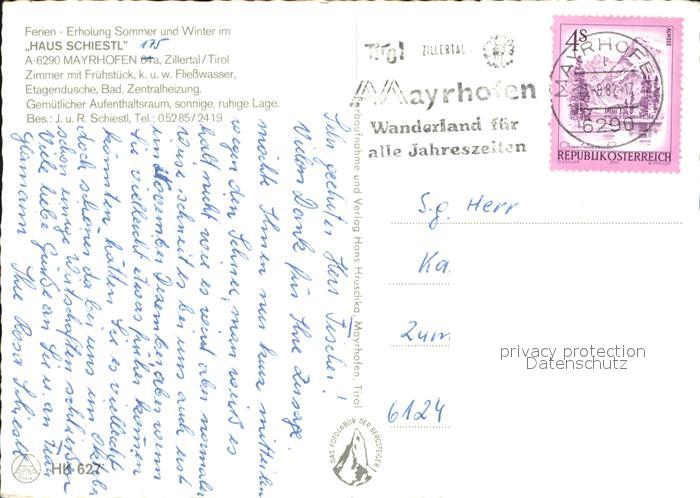 Ferien - Erholung Sommer und Winter im
„HAUS SCHIESTL" 175
A-6290 MAYRHOFEN 81a, Zillertal/Tirol
Zimmer mit Frühstück, k. u. w. Fließwasser,
Etagendusche, Bad, Zentralheizung.
Gemütlicher Aufenthaltsraum, sonnige, ruhige Lage.
Bes.: J. u. R. Schiestl, Tel.: 05285/2419
Sehr geehrter Herr Fischer!
Vielen Dank für Ihre Zusage.
möchte Ihnen nur kurz mitteilen
wegen den Schnee, man weiß es
halt nicht wie es wird aber normaler
weise schneit es bei uns auch erst
im November Dezember aber wenn
Sie vielleicht etwas früher kommen
könnten, hätten Sie es vielleicht
doch schöner da bei uns im Oktober
schon einige Wirtschaften schließen
Viele liebe Grüße an Sie u. an Frau
Ihre Rosa Schiestl
HH 627
Farbaufnahme und Verlag Hans Hruschka, Mayrhofen, Tirol
DAS FOTOLABOR DER BERGSTEIGER
Tirol ZILLERTAL
Mayrhofen
Wanderland für
alle Jahreszeiten
MAYRHOFEN
6290
4s
ALMSEE
REPUBLIK ÖSTERREICH
S.g. Herr
Ka
Zum
6124
privacy protection
Datenschutz